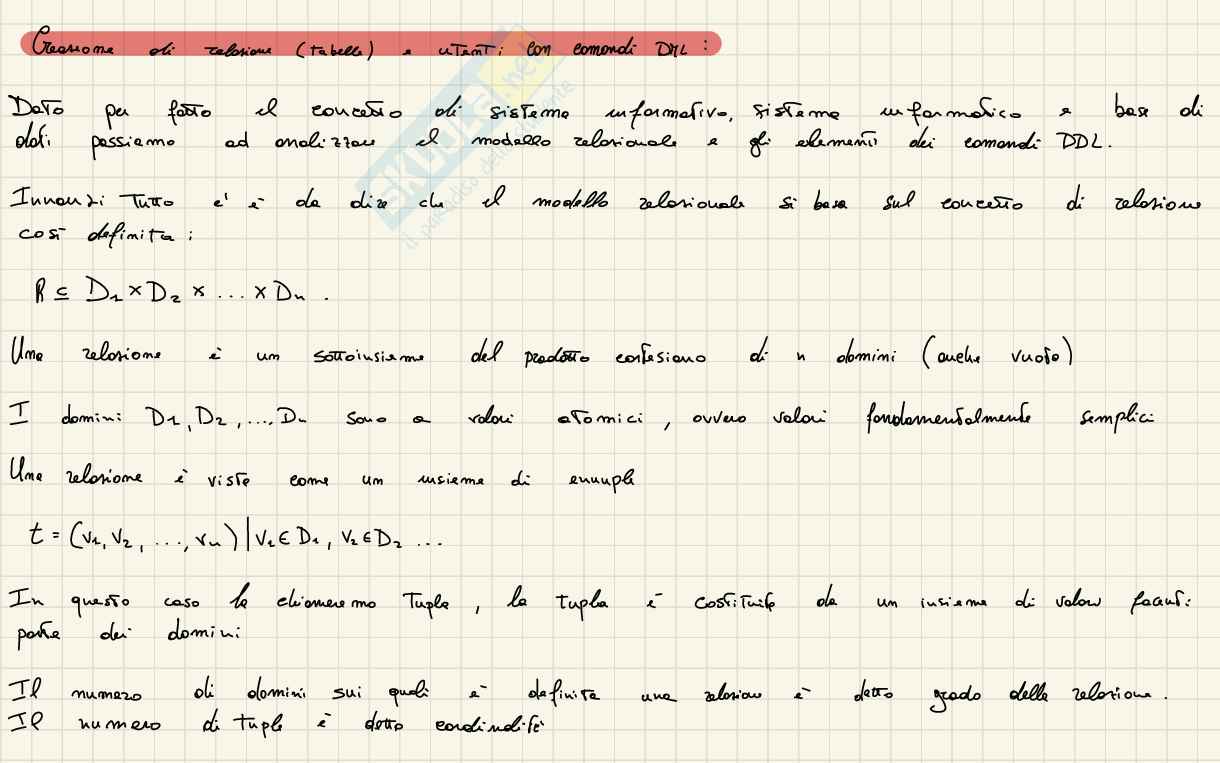 Creazione di relazione (tabelle) e utenti con comandi DML :
Dato per fatto il concetto di sistema informativo, sistema informatico e base di
dati possiamo ad analizzare il modello relazionale e gli elementi dei comandi DDL.
Innanzi Tutto c'è da dire che il modello relazionale si basa sul concetto di relazione
così definita :
R ⊆ D1 × D2 × ... × Dn .
Una relazione è un sottoinsieme del prodotto cartesiano di n domini (anche vuoto)
I domini D1, D2, ..., Dn sono a valori atomici, ovvero valori fondamentalmente semplici
Una relazione è vista come un insieme di ennuple
t = (v1, v2, ..., vn) | v1 ∈ D1, v2 ∈ D2 ...
In questo caso la chiameremo Tupla, la tupla è costituita da un insieme di valori facenti
parte dei domini
Il numero di domini sui quali è definita una relazione è detto grado della relazione.
Il numero di tuple è detto cardinalità
skuola.net
il paradiso dello studente